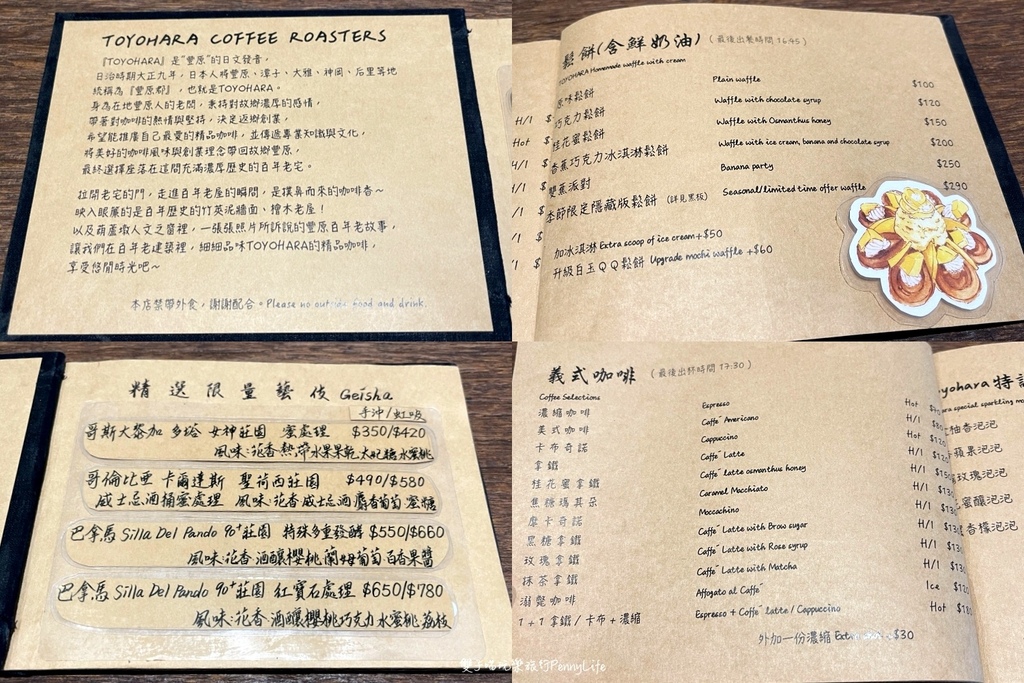 TOYOHARA COFFEE ROASTERS
『TOYOHARA』是"豐原"的日文發音，
日治時期大正九年，日本人將豐原、潭子、大雅、神岡、后里等地
統稱為『豐原郡』，也就是TOYOHARA。
身為在地豐原人的老闆，秉持對故鄉濃厚的感情，
帶著對咖啡的熱情與堅持，決定返鄉創業，
希望能推廣自己最愛的精品咖啡，並傳遞專業知識與文化，
將美好的咖啡風味與創業理念帶回故鄉豐原，
最終選擇座落在這間充滿濃厚歷史的百年老宅。
拉開老宅的門，走進百年老屋的瞬間，是撲鼻而來的咖啡香～
映入眼簾的是百年歷史的竹英泥牆面、檜木老屋！
以及葫蘆墩人文之窗裡，一張張照片所訴說的豐原百年老故事，
讓我們在百年老建築裡，細細品味TOYOHARA的精品咖啡，
享受悠閒時光吧～
本店禁帶外食，謝謝配合。Please no outside food and drink.
鬆餅(含鮮奶油) (最後出餐時間 16:45)
TOYOHARA Homemade waffle with cream
原味鬆餅 Plain waffle $100
巧克力鬆餅 Waffle with chocolate syrup $120
桂花蜜鬆餅 Waffle with Osmanthus honey $150
香蕉巧克力冰淇淋鬆餅 Waffle with ice cream, banana and chocolate syrup $200
雙蕉派對 Banana party $250
本節限定隱藏版鬆餅 (詳見黑板) Seasonal/limited time offer waffle $290
加冰淇淋 Extra scoop of ice cream +$50
升級白玉QQ鬆餅 Upgrade mochi waffle +$60
H/I $
Hot $
H/I $
H/I $
/I $
/I $
I $
精選限量藝伎 Geisha
手沖/虹吸
哥斯大黎加 多塔 女神莊園 蜜處理 $350/$420
風味:花香 熱帶水果果乾 太妃糖 水蜜桃
哥倫比亞 卡爾達斯 聖荷西莊園 $490/$580
威士忌酒桶蜜處理 風味:花香 威士忌酒 麝香葡萄 蜜糖
巴拿馬 Silla Del Pando 90⁺莊園 特殊多重發酵 $550/$660
風味:花香 酒釀櫻桃 蘭姆葡萄 百香果醬
巴拿馬 Silla Del Pando 90⁺莊園 紅寶石處理 $650/$780
風味:花香 酒釀櫻桃巧克力 水蜜桃 荔枝
義式咖啡 (最後出杯時間 17:30)
Coffee Selections
濃縮咖啡 Espresso Hot
美式咖啡 Caffe' Americano H/I
卡布奇諾 Cappuccino Hot
拿鐵 Caffe' Latte H/I
桂花蜜拿鐵 Caffe' latte osmanthus honey H/I
焦糖瑪其朵 Caramel Macchiato H/I
摩卡奇諾 Moccachino H/I
黑糖拿鐵 Caffe' Latte with Brow sugar H/I
玫瑰拿鐵 Caffe' Latte with Rose syrup H/I
抹茶拿鐵 Caffe' Latte with Matcha H/I
溺斃咖啡 Affogato al Caffe' Ice
1+1 拿鐵/卡布+濃縮 Espresso + Caffe' latte / Cappuccino Hot
外加一份濃縮 +$30
oyohara 特
ara special sparkling
柚香泡泡
蘋果泡泡
玫瑰泡泡
蜜釀泡泡
香檬泡泡
PennyLife